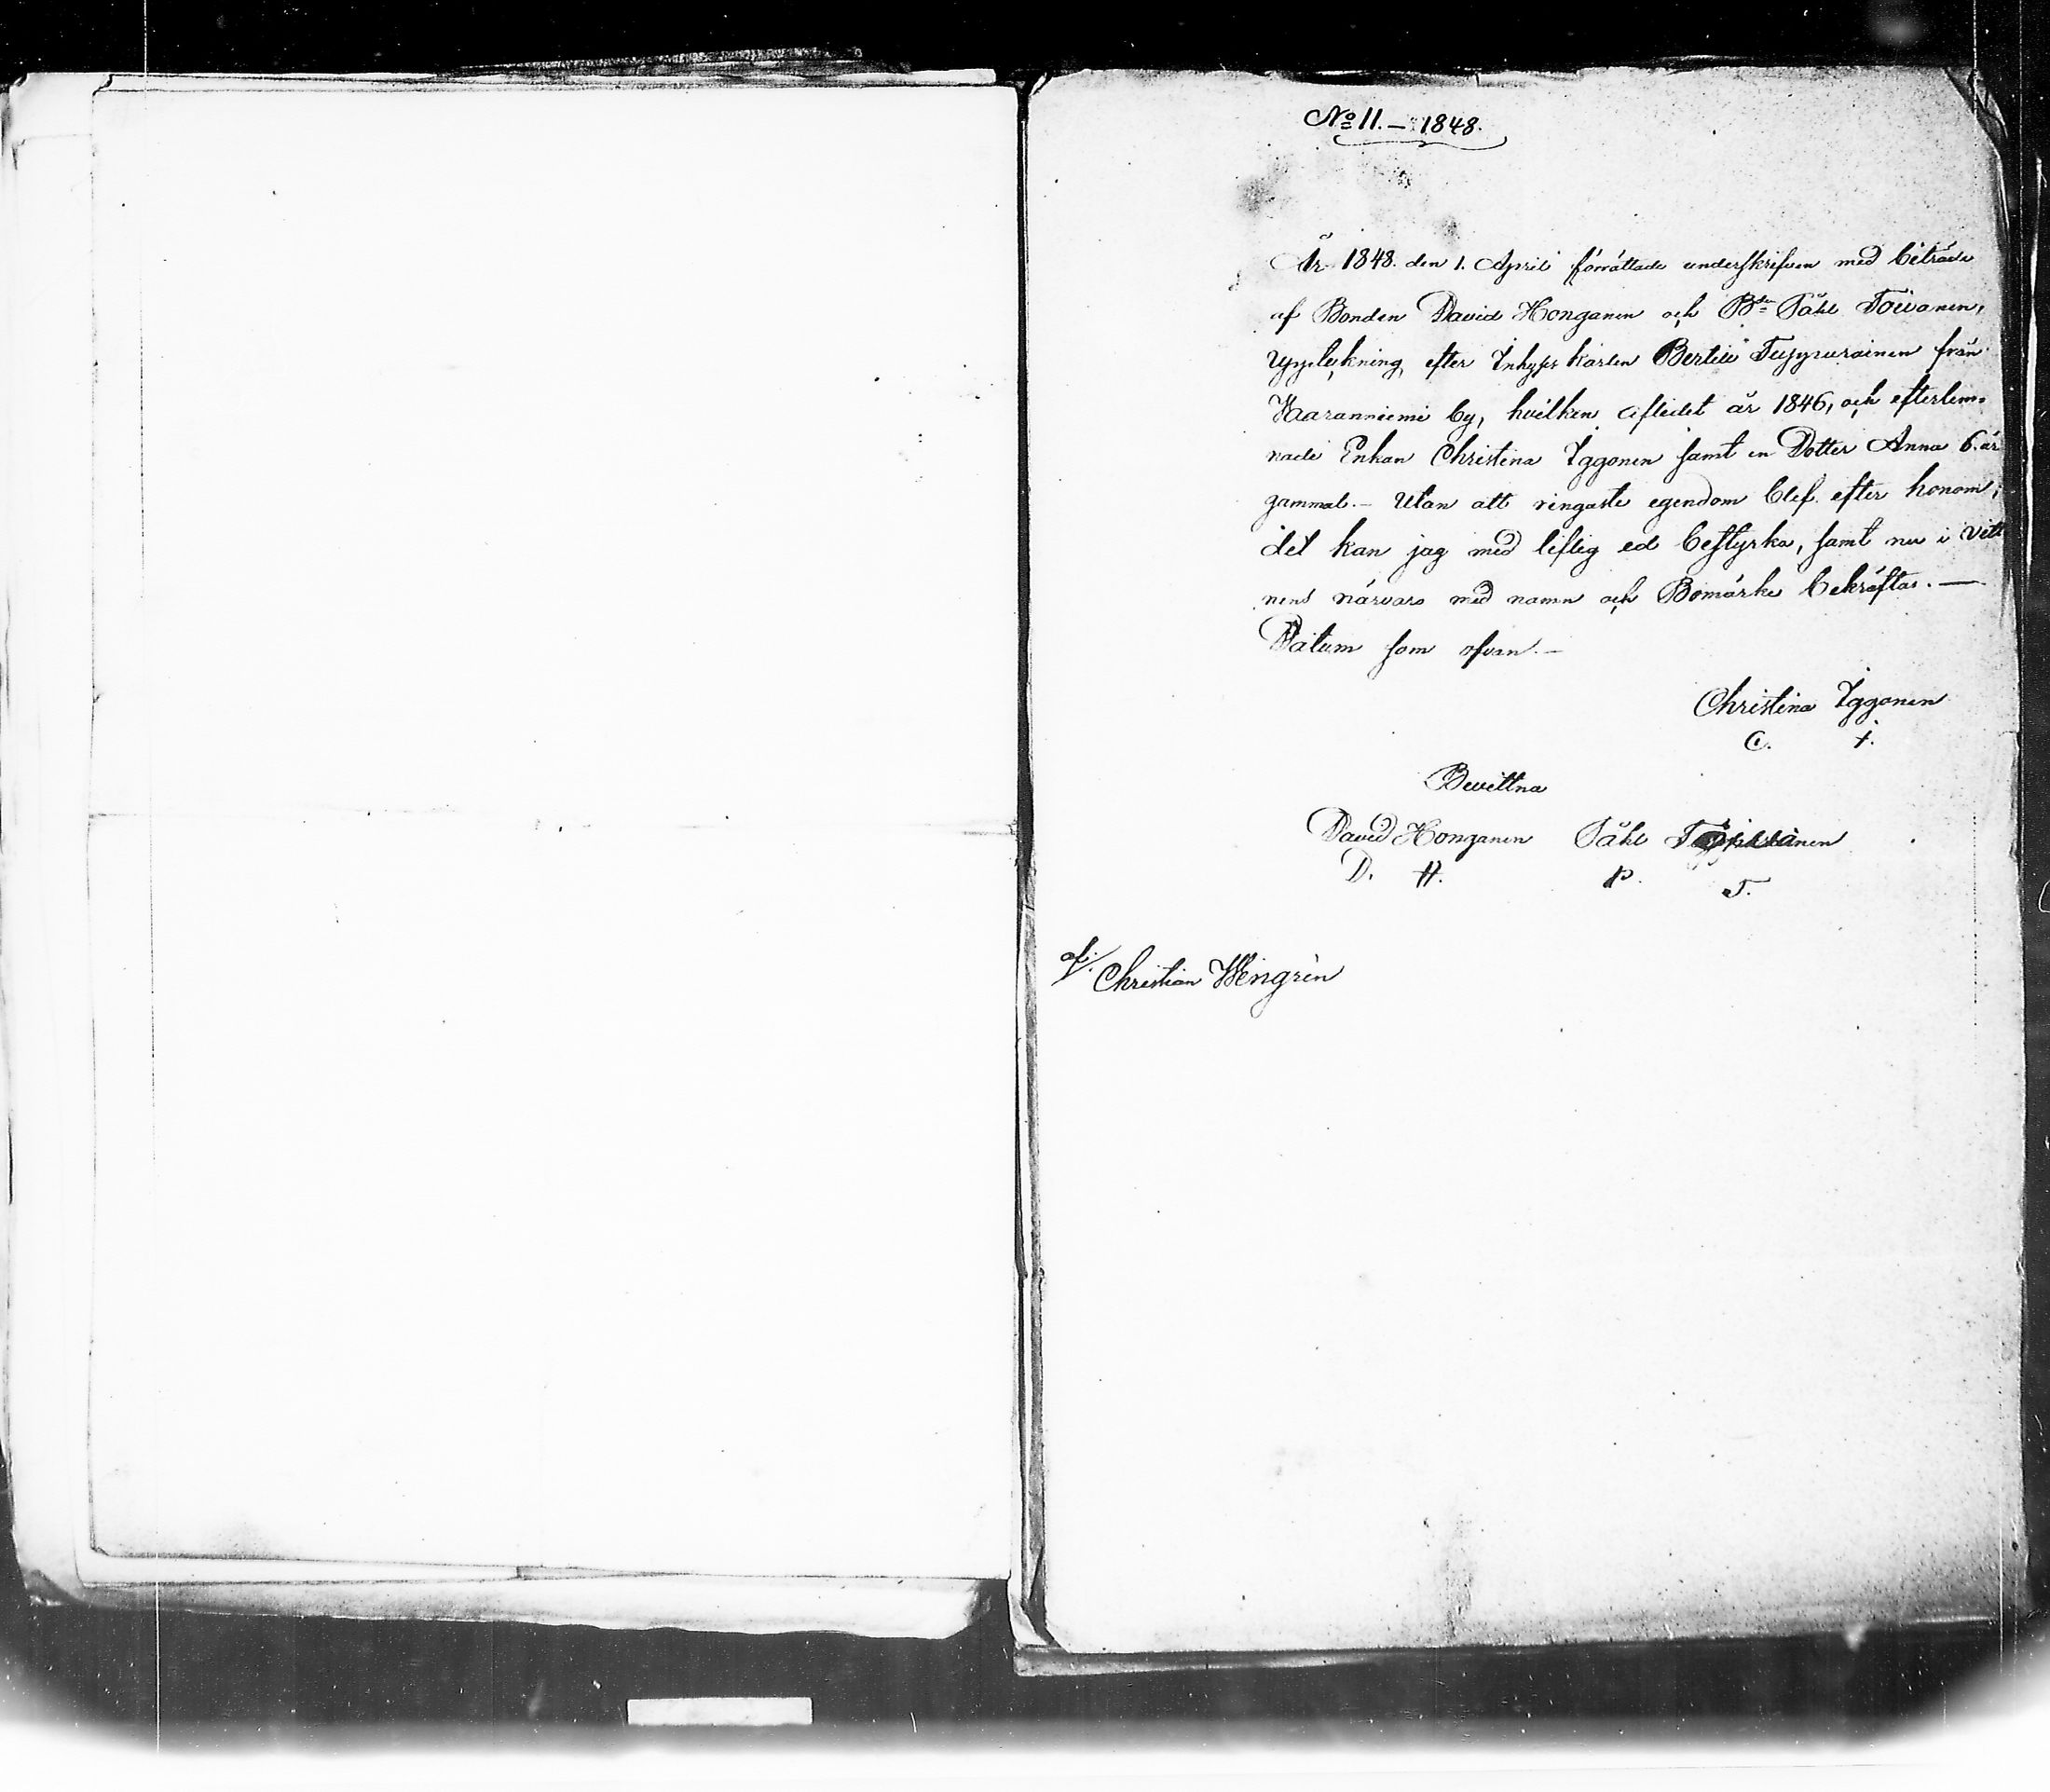 No 11. – 1848.
År 1848. den 1. April förrättade underskrifven med biträde
af Bonden David Honganen och Bdn Påhl Toivanen,
Uppteckning efter Inhyses karlen Bertill Tuppurainen från
Haaranniemi by, hvilken afledet år 1846, och efterlem-
nade Enkan Christina Iggonen samt en Dotter Anna 6. år
gammal. – Utan att ringaste egendom blef efter honom;
det kan jag med liflig ed bestyrka, samt nu i vitt
nens närvaro med namn och Bomärke bekräftas. —
Datum som ofvan. –
Christina Iggonen
C. I.
Bevittna
David Honganen Påhl
D. H. P. T.
af. Christian Wengrèn